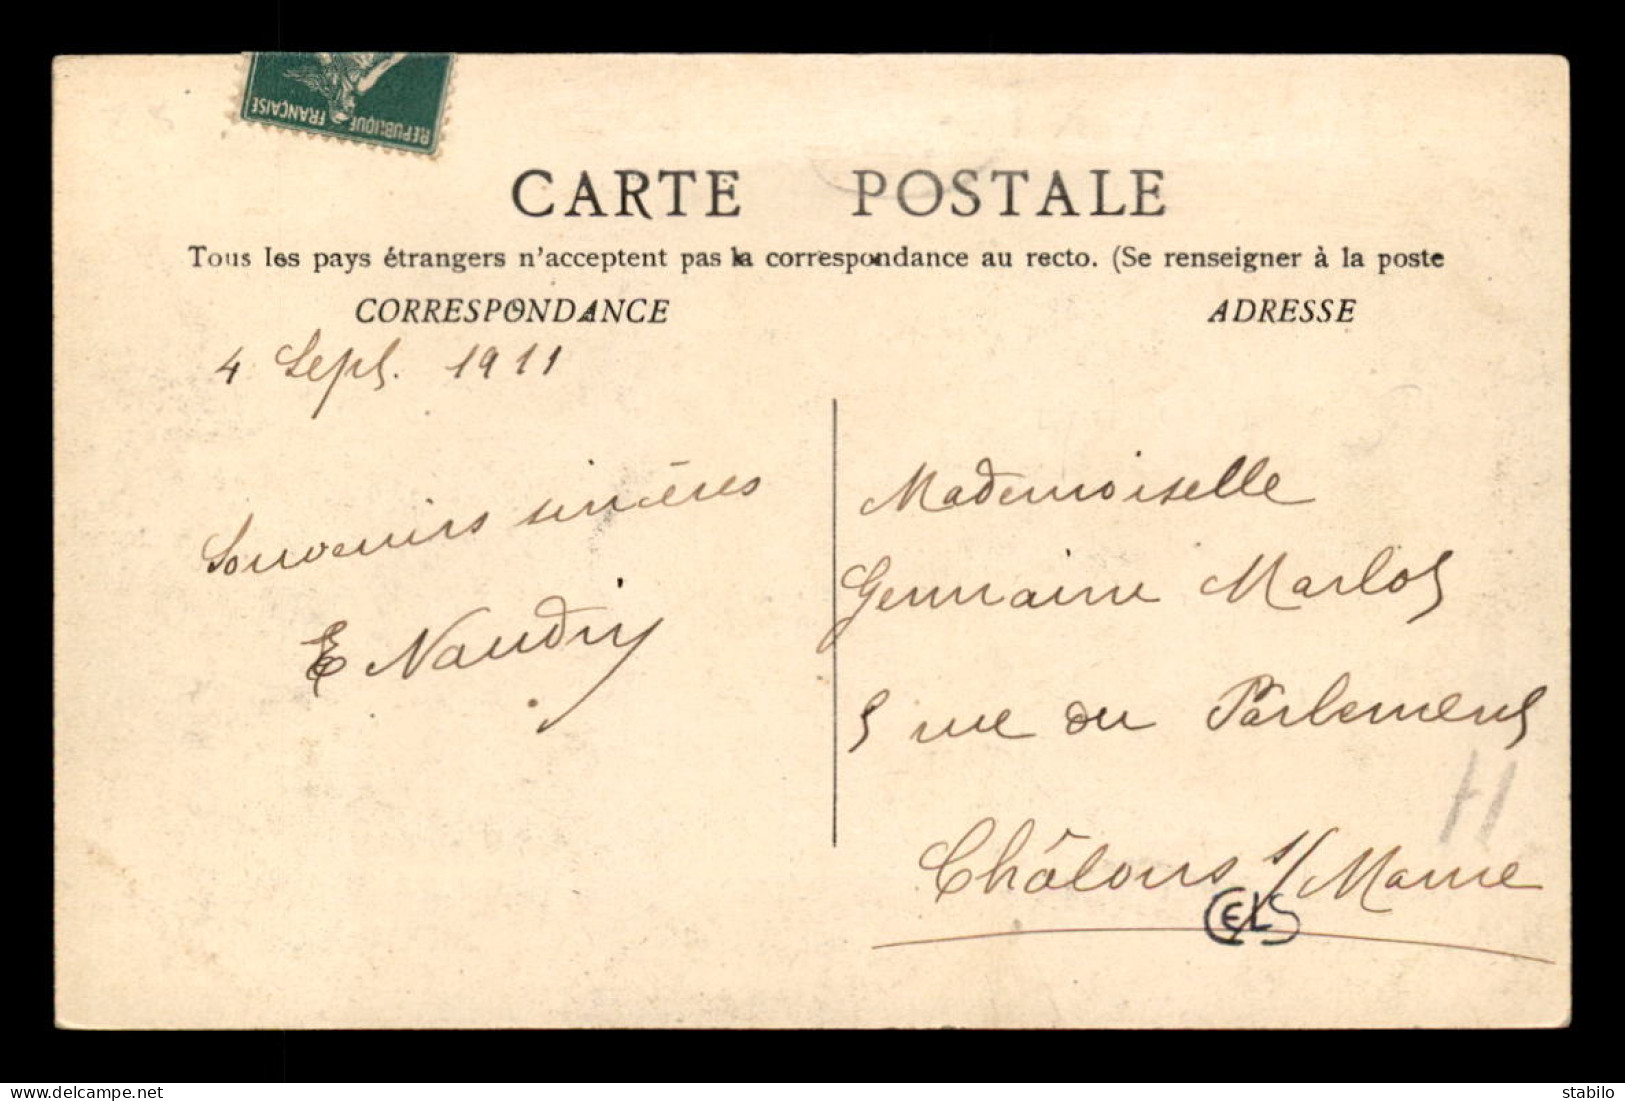 REPUBLIQUE FRANÇAISE
CARTE POSTALE
Tous les pays étrangers n'acceptent pas la correspondance au recto. (Se renseigner à la poste
CORRESPONDANCE
ADRESSE
4 Sept. 1911
Souvenirs sincères
E Naudry
Mademoiselle
Germaine Marlot
5 rue du Parlement
Châlons s/Marne
CELS
Delcampe.net
stabilo